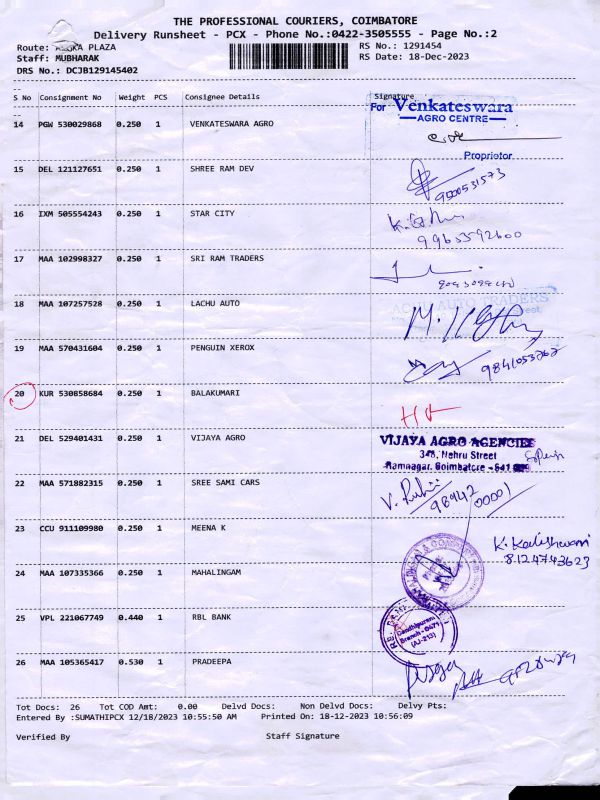 THE PROFESSIONAL COURIERS, COIMBATORE
Delivery Runsheet - PCX - Phone No.:0422-3505555 - Page No.:2
Route: PLAZA
RS No.: 1291454
Staff: MUBHARAK
RS Date: 18-Dec-2023
DRS No.: DCJB129145402
S No Consignment No Weight PCS Consignee Details Signature
14 PGW 530029868 0.250 1 VENKATESWARA AGRO
For Venkateswara
AGRO CENTRE
Proprietor
15 DEL 121127651 0.250 1 SHREE RAM DEV
16 IXM 505554243 0.250 1 STAR CITY
9963592600
17 MAA 102998327 0.250 1 SRI RAM TRADERS
18 MAA 107257528 0.250 1 LACHU AUTO
AUTO TRADERS
19 MAA 570431604 0.250 1 PENGUIN XEROX
9841053262
20 KUR 530858684 0.250 1 BALAKUMARI
21 DEL 529401431 0.250 1 VIJAYA AGRO
VIJAYA AGRO AGENCIES
348, Nehru Street
Ramnagar, Coimbatore - 641
22 MAA 571882315 0.250 1 SREE SAMI CARS
98942 00001
23 CCU 911109980 0.250 1 MEENA K
8124743623
24 MAA 107335366 0.250 1 MAHALINGAM
25 VPL 221067749 0.440 1 RBL BANK
Gandhipuram
Branch - 0471
(AJ-213)
26 MAA 105365417 0.530 1 PRADEEPA
Tot Docs: 26 Tot COD Amt: 0.00 Delvd Docs: Non Delvd Docs: Delvy Pts:
Entered By :SUMATHIPCX 12/18/2023 10:55:50 AM Printed On: 18-12-2023 10:56:09
Verified By Staff Signature